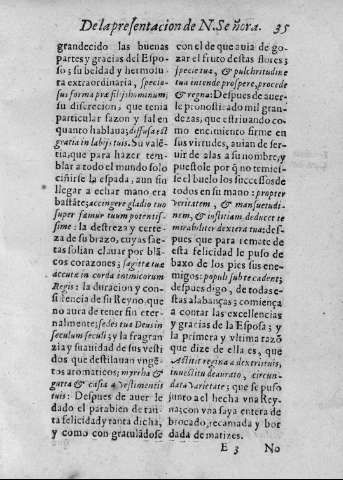 De la presentacion de N. Señora. 35
grandecido las buenas
partes y gracias del Espo-
so; su beldad y hermosu-
ra extraordinaria, specio-
sus forma præ filijs hominum;
su discrecion, que tenia
particular sazon y sal en
quanto hablaua; diffusa est
gratia in labijs tuis. Su valē-
tia, que para hazer tem-
blar a todo el mundo solo
ciñirse la espada, aun sin
llegar a echar mano era
bastāte; accingere gladio tuo
super fœmur tuum potentis-
sime: la destreza y certe-
za de su brazo, cuyas sae-
tas solian clauar por blā-
cos corazones; sagittæ tuæ
accutæ in corda inimicorum
Regis: la duracion y con-
sistencia de su Reyno, que
no aura de tener fin eter-
nalmente; sedes tua Deus in
seculum seculi; y la fragran-
cia y suauidad de sus vesti
dos que destilauan vngē-
tos aromaticos; myrrha &
gutta & casia a vestimentis
tuis: Despues de auer le
dado el parabien de tan-
ta felicidad y tanta dicha,
y como con gratulādose
con el de que auia de go-
zar el fruto destas flores;
specie tua, & pulchritudine
tua intende prospere, procede
& regna: Despues de auer-
le pronosticado mil gran-
dezas, que estriuando co-
mo encimiento firme en
sus virtudes, auian de ser-
uir de alas a su nombre, y
puestole por q̄ no temies-
se el buelo los successos de
todos en su mano: propter
veritatem, & mansuetudi-
nem, & iustitiam deducet te
mirabiliter dextera tua: des-
pues que para remate de
esta felicidad le puso de
baxo de los pies sus ene-
migos: populi sub te cadent;
despues digo, de todas e-
stas alabanças; comiença
a contar las excellencias
y gracias de la Esposa; y
la primera y vltima razō
que dize de ella es, que
Astitit regina a dextris tuis,
in uestitu deaurato, circun-
data varietate; que se puso
junto a el hecha vna Rey-
na; con vna saya entera de
brocado, recamada y bor
dada de matizes.
E 3 No